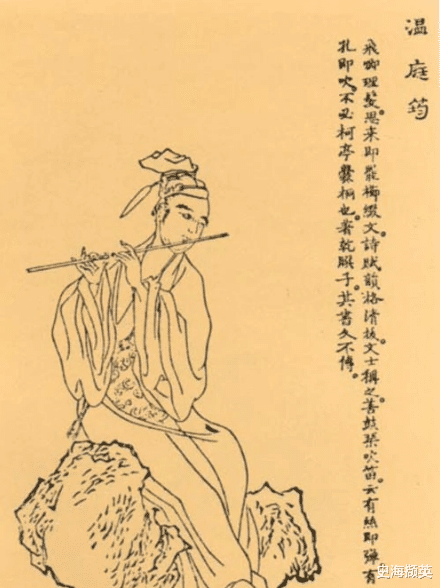 温庭筠
飛卿理髮。思来即罷櫛綴文。詩賦韻格清拔。文士稱之。善鼓琴吹笛。云有絲即彈有
孔即吹。不必柯亭爨桐也。著乾𦠆子。其書久不傳。
史海撷英